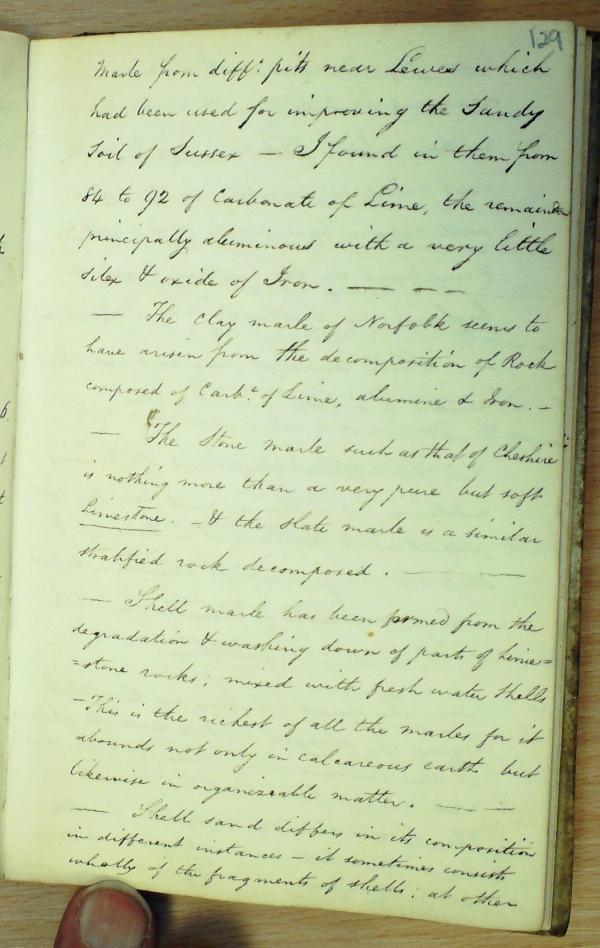 129
Marle from diff.t pits near Lewes which
had been used for improving the Sandy
Soil of Sussex — I found in them from
84 to 92 of Carbonate of Lime, the remainder
principally aluminous with a very little
silex & oxide of Iron. — — —
— The clay marle of Norfolk seems to
have arisen from the decomposition of Rock
composed of Carb.e of Lime, alumine & Iron. —
— The Stone marle such as that of Cheshire
is nothing more than a very pure but soft
Limestone. — & the slate marle is a similar
stratified rock decomposed. — —
— Shell marle has been formed from the
degradation & washing down of parts of Lime=
=stone rocks; mixed with fresh water Shells
— This is the richest of all the marles for it
abounds not only in calcareous earth but
likewise in organizeable matter. — —
— Shell sand differs in its composition
in different instances — it sometimes consists
wholly of the fragments of shells: at other